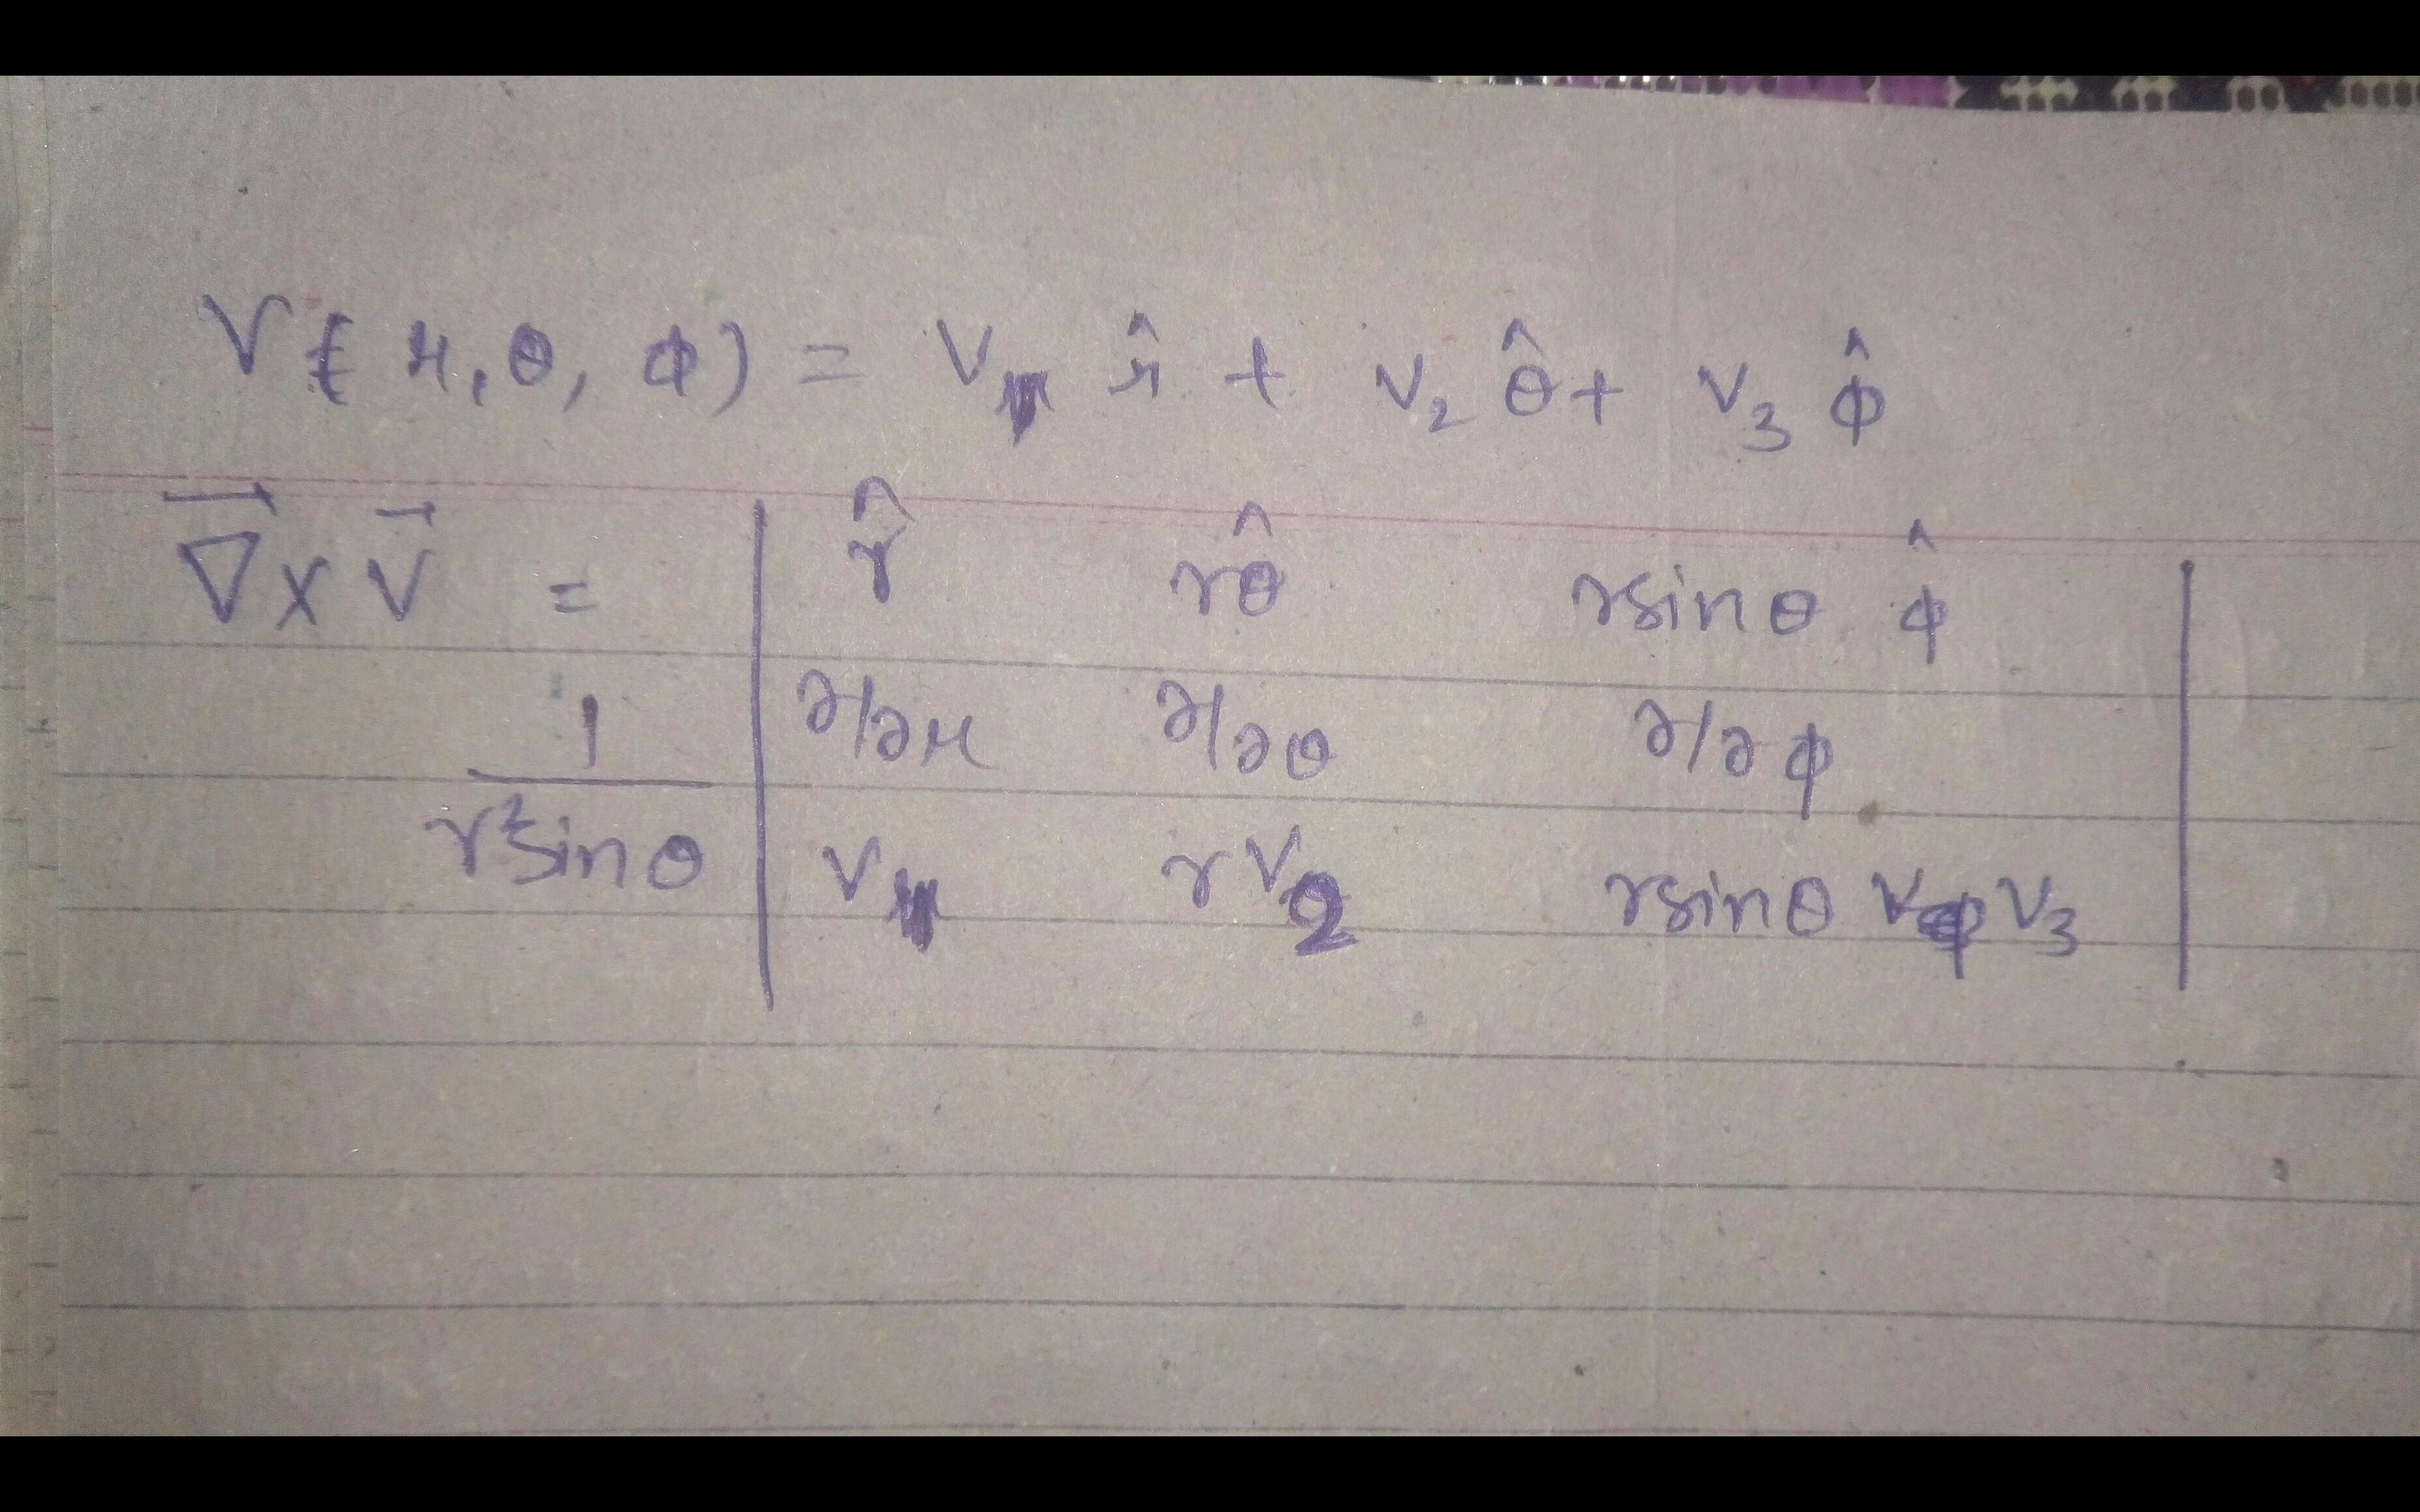 V(r, θ, φ) = V₁ r̂ + V₂ θ̂ + V₃ φ̂
∇⃗ × V⃗ = | r̂ rθ̂ r sin θ φ̂ |
1/(r² sin θ) | ∂/∂r ∂/∂θ ∂/∂φ |
| V₁ rV₂ r sin θ V₃ |